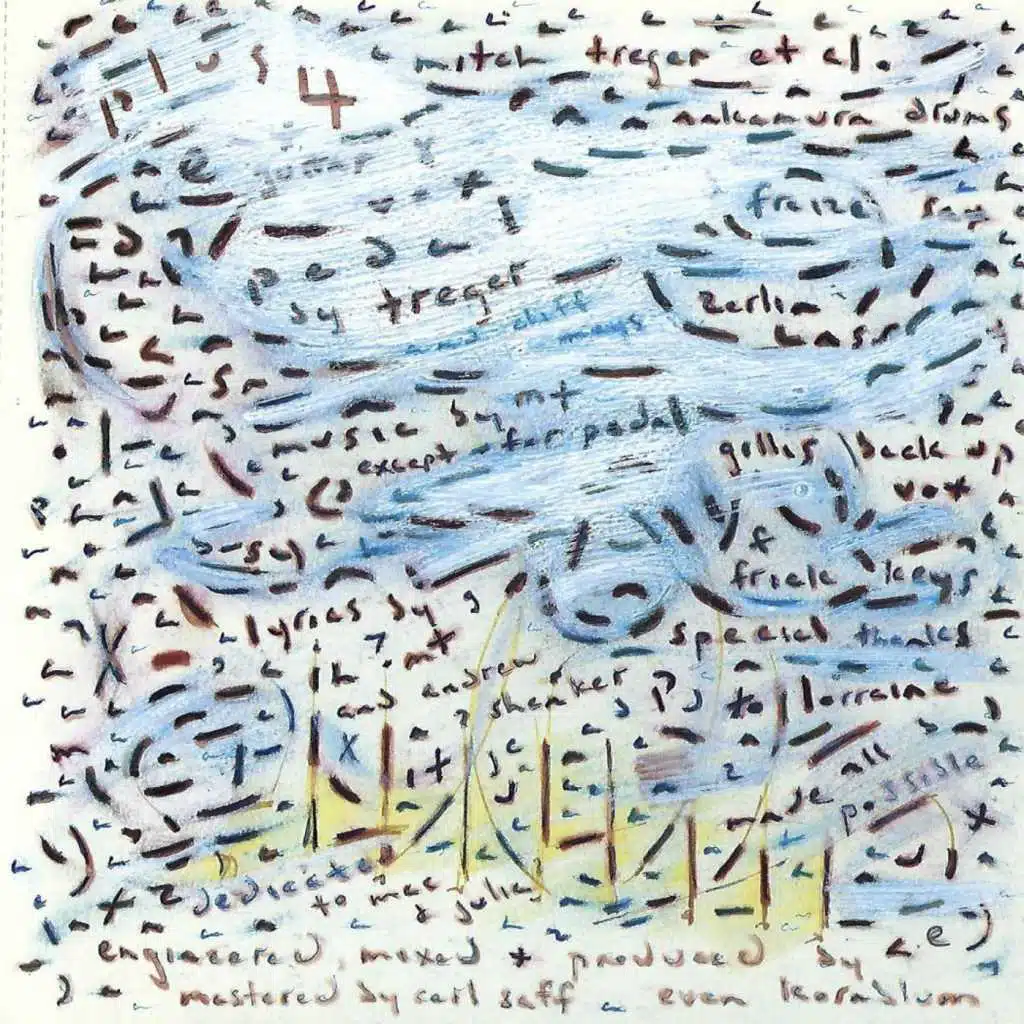 plus 4
mitch treger et al.
nakamura drums
guitar &
vox
pedal
by treger
and cliff
mays
zerlin
bass
music by mt
except for pedal
gillis back up
vox
&
frick keys
lyrics by
mt
and andrew
shenker
special thanks
to lorraine
all
made possible
it
dedicated
to mac
& julia
engineered, mixed + produced by
mastered by carl saff even kornblum